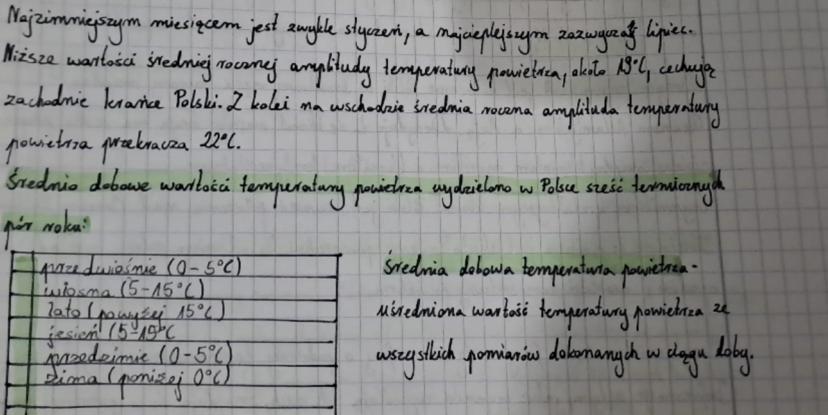 Najzimniejszym miesiącem jest zwykle styczeń, a najcieplejszym zazwyczaj lipiec.
Niższe wartości średniej rocznej amplitudy temperatury powietrza, około 19°C, cechują
zachodnie krańce Polski. Z kolei na wschodzie średnia roczna amplituda temperatury
powietrza przekracza 22°C.
Średnio dobowe wartości temperatury powietrza wydzielono w Polsce sześć termicznych
pór roku:
przedwiośnie (0-5°C)
wiosna (5-15°C)
lato (powyżej 15°C)
jesień (5-15°C
przedzimie (0-5°C)
zima (poniżej 0°C)
średnia dobowa temperatura powietrza -
uśredniona wartość temperatury powietrza ze
wszystkich pomiarów dokonanych w ciągu doby.